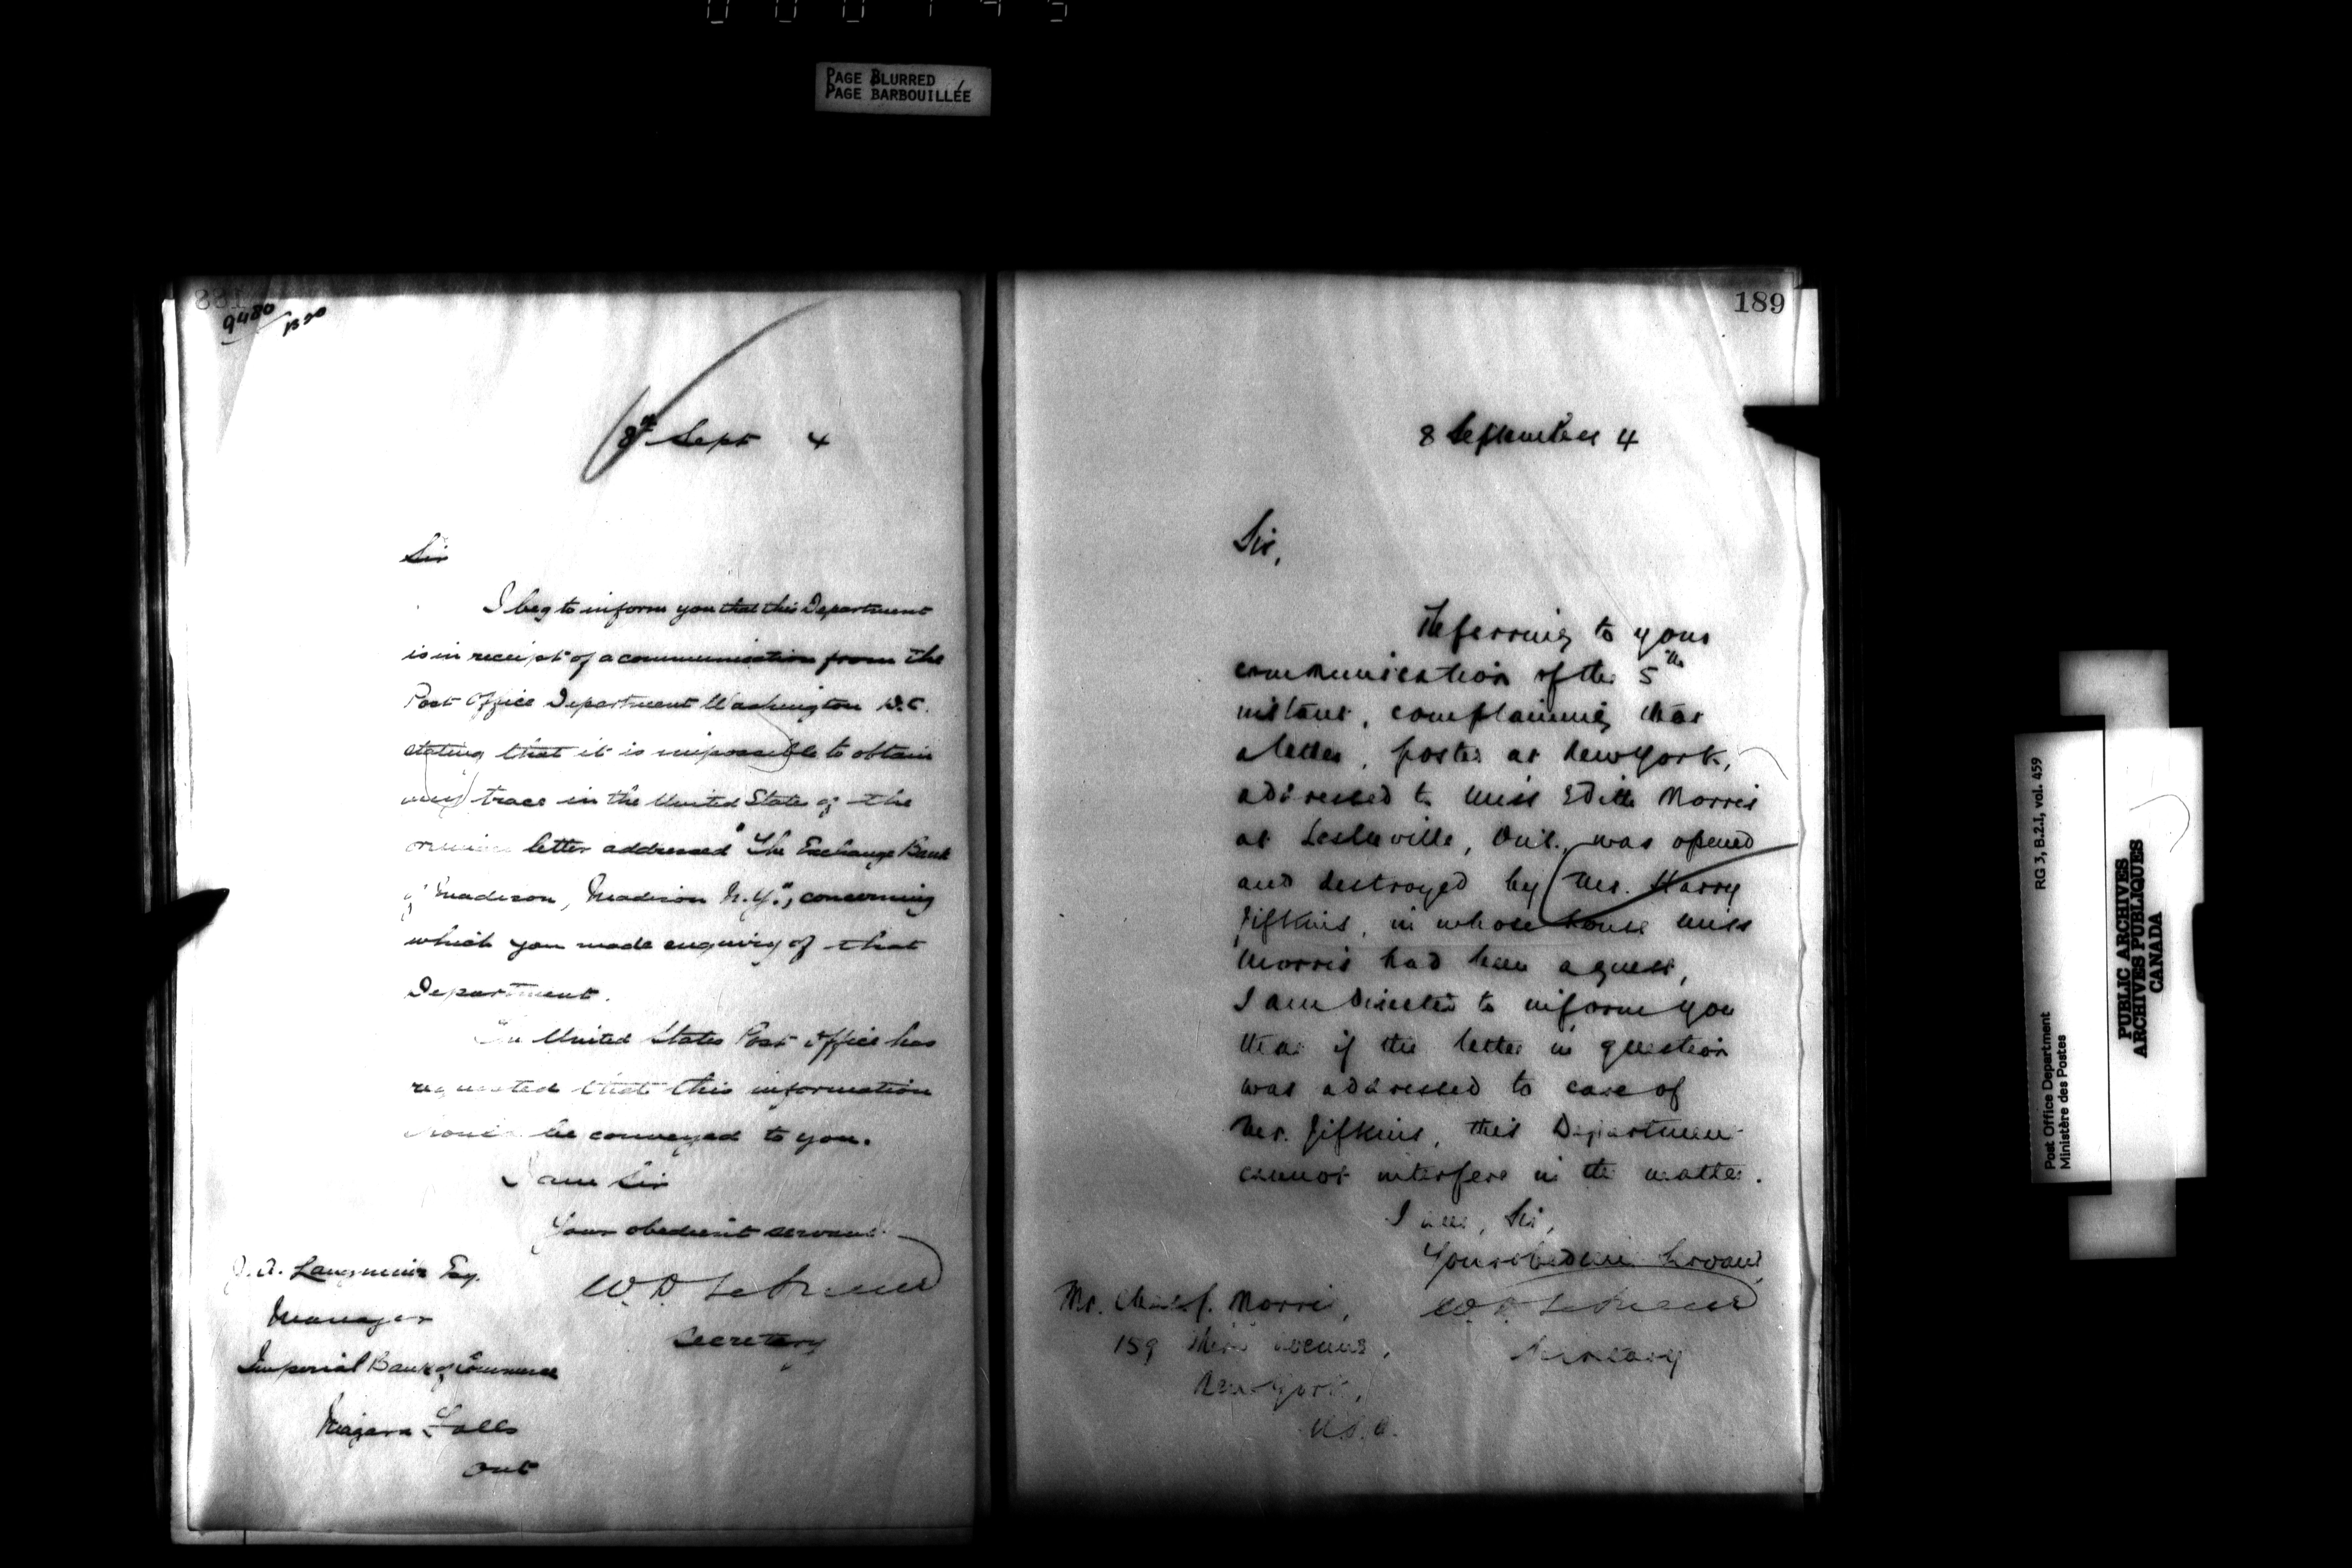 PAGE BLURRED
PAGE BARBOUILLÉE
9480
8th Sept 4
Sir
I beg to inform you that this Department
is in receipt of a communication from the
Post Office Department Washington D.C.
stating that it is impossible to obtain
any trace in the United States of the
letter addressed "The Exchange Bank
of Madison, Madison N.Y.", concerning
which you made enquiry of that
Department.
The United States Post Office has
requested that this information
should be conveyed to you.
I am Sir
Your obedient servant
Secretary
Langmuir Esq.
Manager
Imperial Bank of Commerce
Niagara Falls
Ont
189
8 September 4
Sir,
Referring to your
communication of the 5th
instant, complaining that
a letter, posted at New York,
addressed to Miss Edith Morris
at Leslieville, Ont., was opened
and destroyed by Mr. Harry
Jifkins, in whose house Miss
Morris had been a guest,
I am directed to inform you
that if the letter in question
was addressed to care of
Mr. Jifkins, this Department
cannot interfere in the matter.
I am, Sir,
Your obedient Servant,
Secretary
Mr. Morris,
159 Third Avenue,
New York,
U.S.A.
RG 3, B.2.I, vol. 459
Post Office Department
Ministère des Postes
PUBLIC ARCHIVES
ARCHIVES PUBLIQUES
CANADA